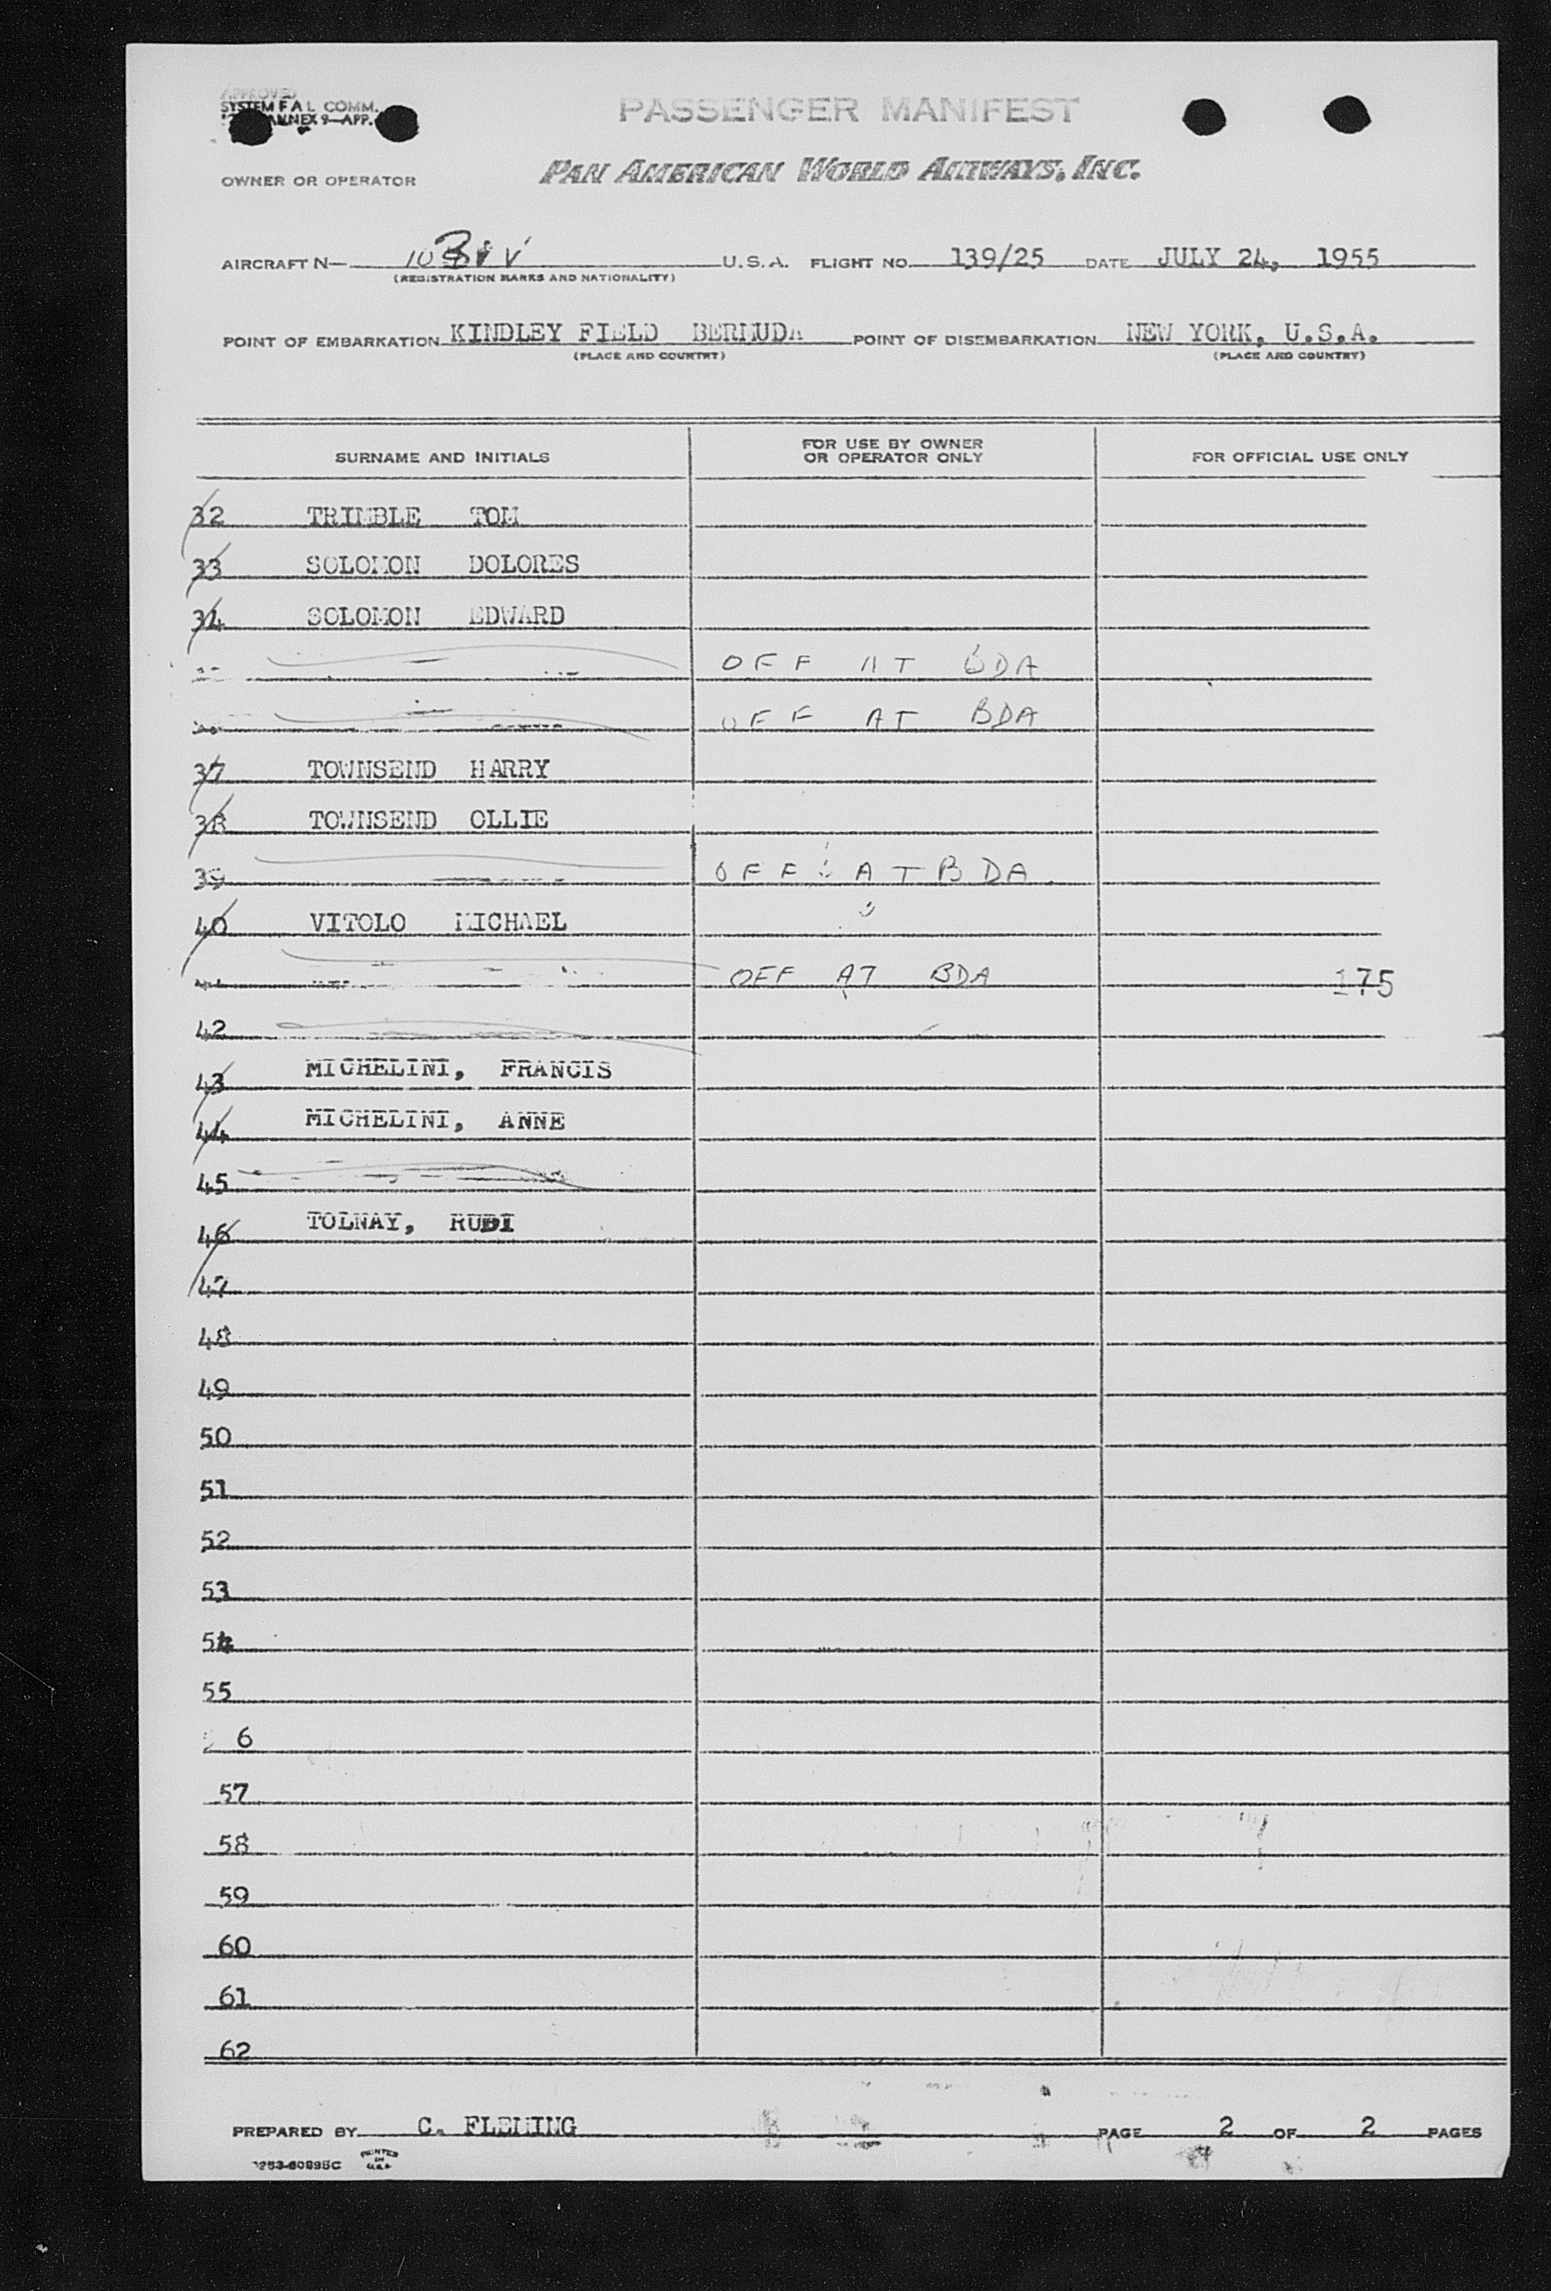 APPROVED
SYSTEM F A L COMM.
ANNEX 9—APP.
PASSENGER MANIFEST
PAN AMERICAN WORLD AIRWAYS, INC.
OWNER OR OPERATOR
AIRCRAFT N— U.S.A. FLIGHT NO. 139/25 DATE JULY 24, 1955
(REGISTRATION MARKS AND NATIONALITY)
POINT OF EMBARKATION KINDLEY FIELD BERMUDA POINT OF DISEMBARKATION NEW YORK, U.S.A.
(PLACE AND COUNTRY) (PLACE AND COUNTRY)
SURNAME AND INITIALS FOR USE BY OWNER OR OPERATOR ONLY FOR OFFICIAL USE ONLY
32 TRIMBLE TOM
33 SOLOMON DOLORES
34 SOLOMON EDWARD
OFF AT BDA
OFF AT BDA
37 TOWNSEND HARRY
38 TOWNSEND OLLIE
39 OFF AT BDA
40 VITOLO MICHAEL
OFF AT BDA 175
42
43 MICHELINI, FRANCIS
44 MICHELINI, ANNE
45
46 TOLNAY, RUDI
47
48
49
50
51
52
53
54
55
6
57
58
59
60
61
62
PREPARED BY C. FLEMING PAGE 2 OF 2 PAGES
PRINTED IN U.S.A.